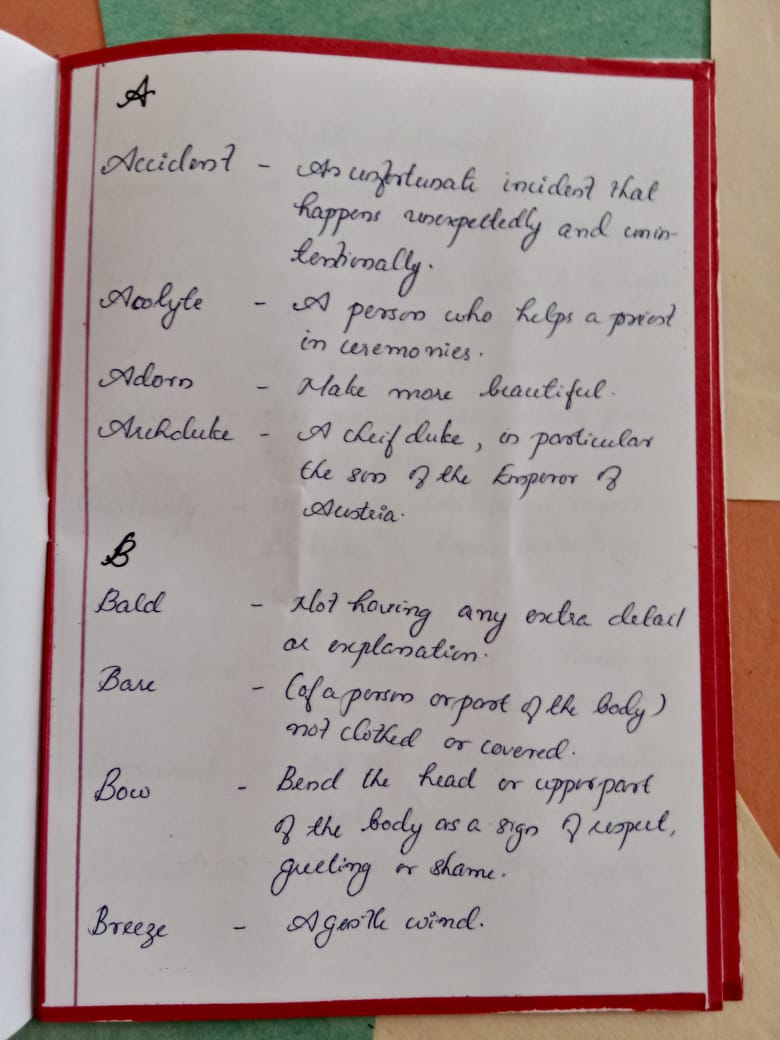 A
Accident - An unfortunate incident that
happens unexpectedly and unin-
tentionally.
Acolyte - A person who helps a priest
in ceremonies.
Adorn - Make more beautiful.
Archduke - A cheif duke, in particular
the son of the Emperor of
Austria.
B
Bald - Not having any extra detail
or explanation.
Bare - (of a person or part of the body)
not clothed or covered.
Bow - Bend the head or upper part
of the body as a sign of respect,
greeting or shame.
Breeze - A gentle wind.